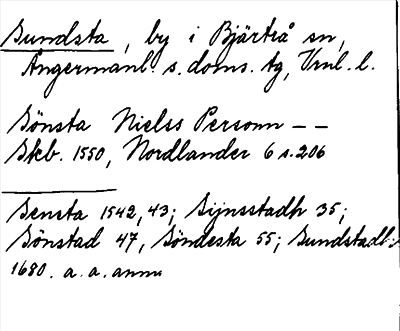 Sundsta, by i Bjärtrå sn,
Ångermanl. s. doms. tg, Vnl. l.
Sönsta Nielss Personn – –
Skb. 1550, Nordlander 6 s. 206
Sensta 1542, 43; Sijnsstadh 35;
Sönstad 47, Söndesta 55; Sundstadh
1680. a. a. anm